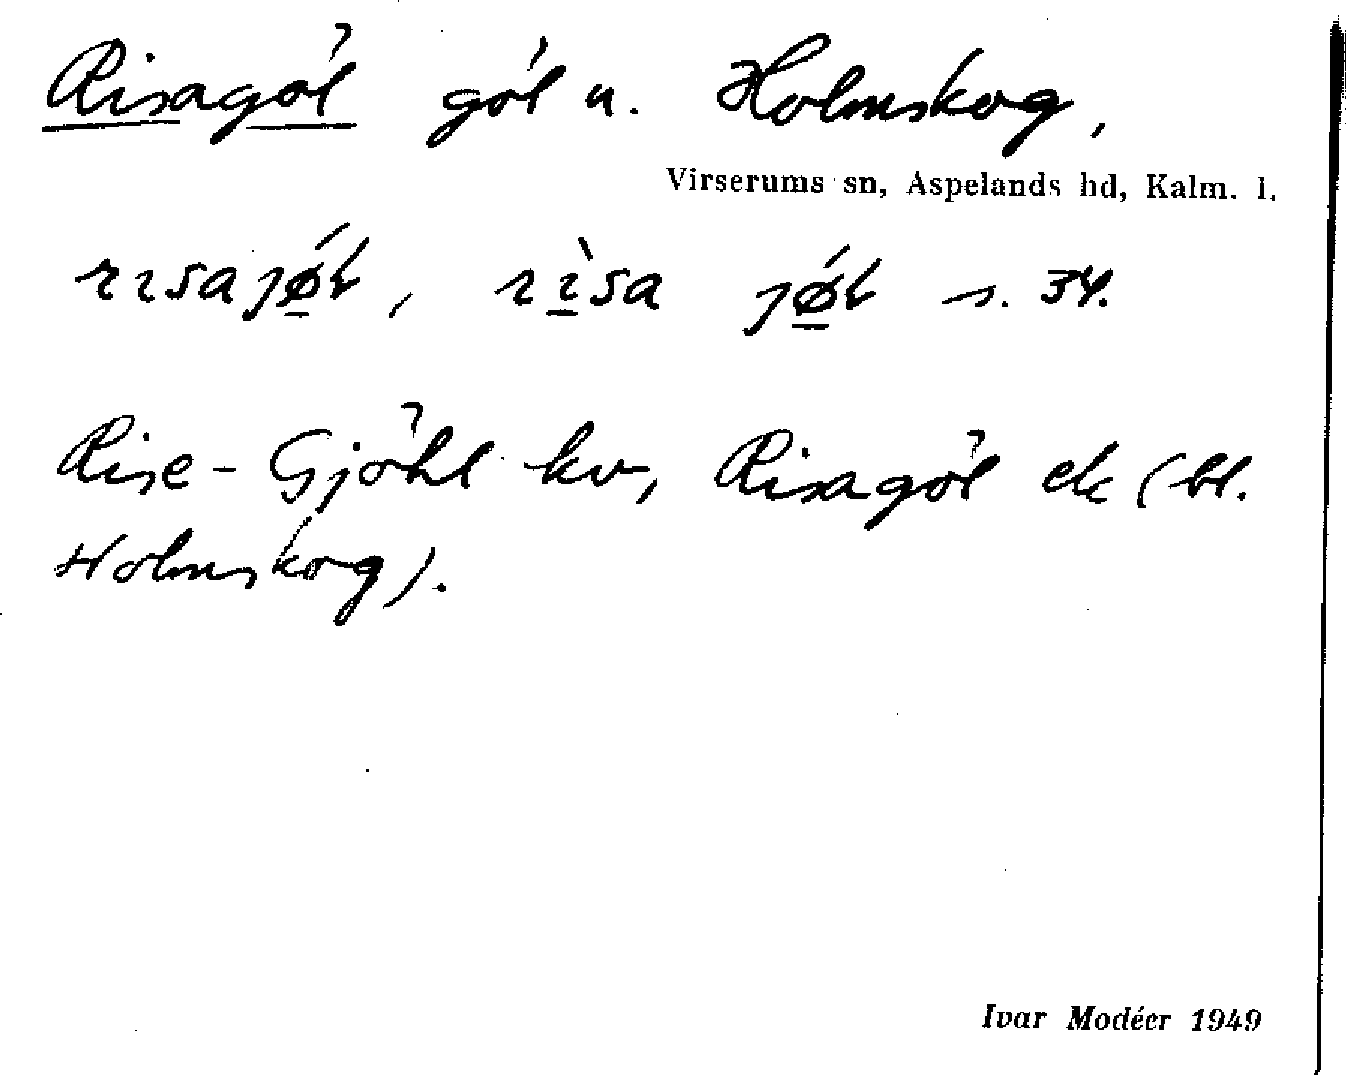 Risagöl göl u. Holmskog,
Virserums sn, Aspelands hd, Kalm. l.
rısaȷǿ̲ł, rı̲̀sa ȷǿ̲ł s. 34.
Rise-Gjöhl kv, Risagöl ek (bl.
Holmskog).
Ivar Modéer 1949